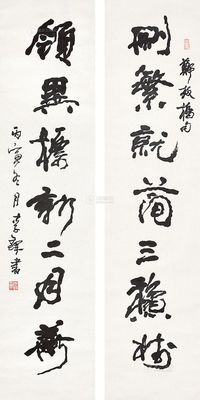 郑板桥句
删繁就简三秋树
领异标新二月花
丙寅冬月李铎书